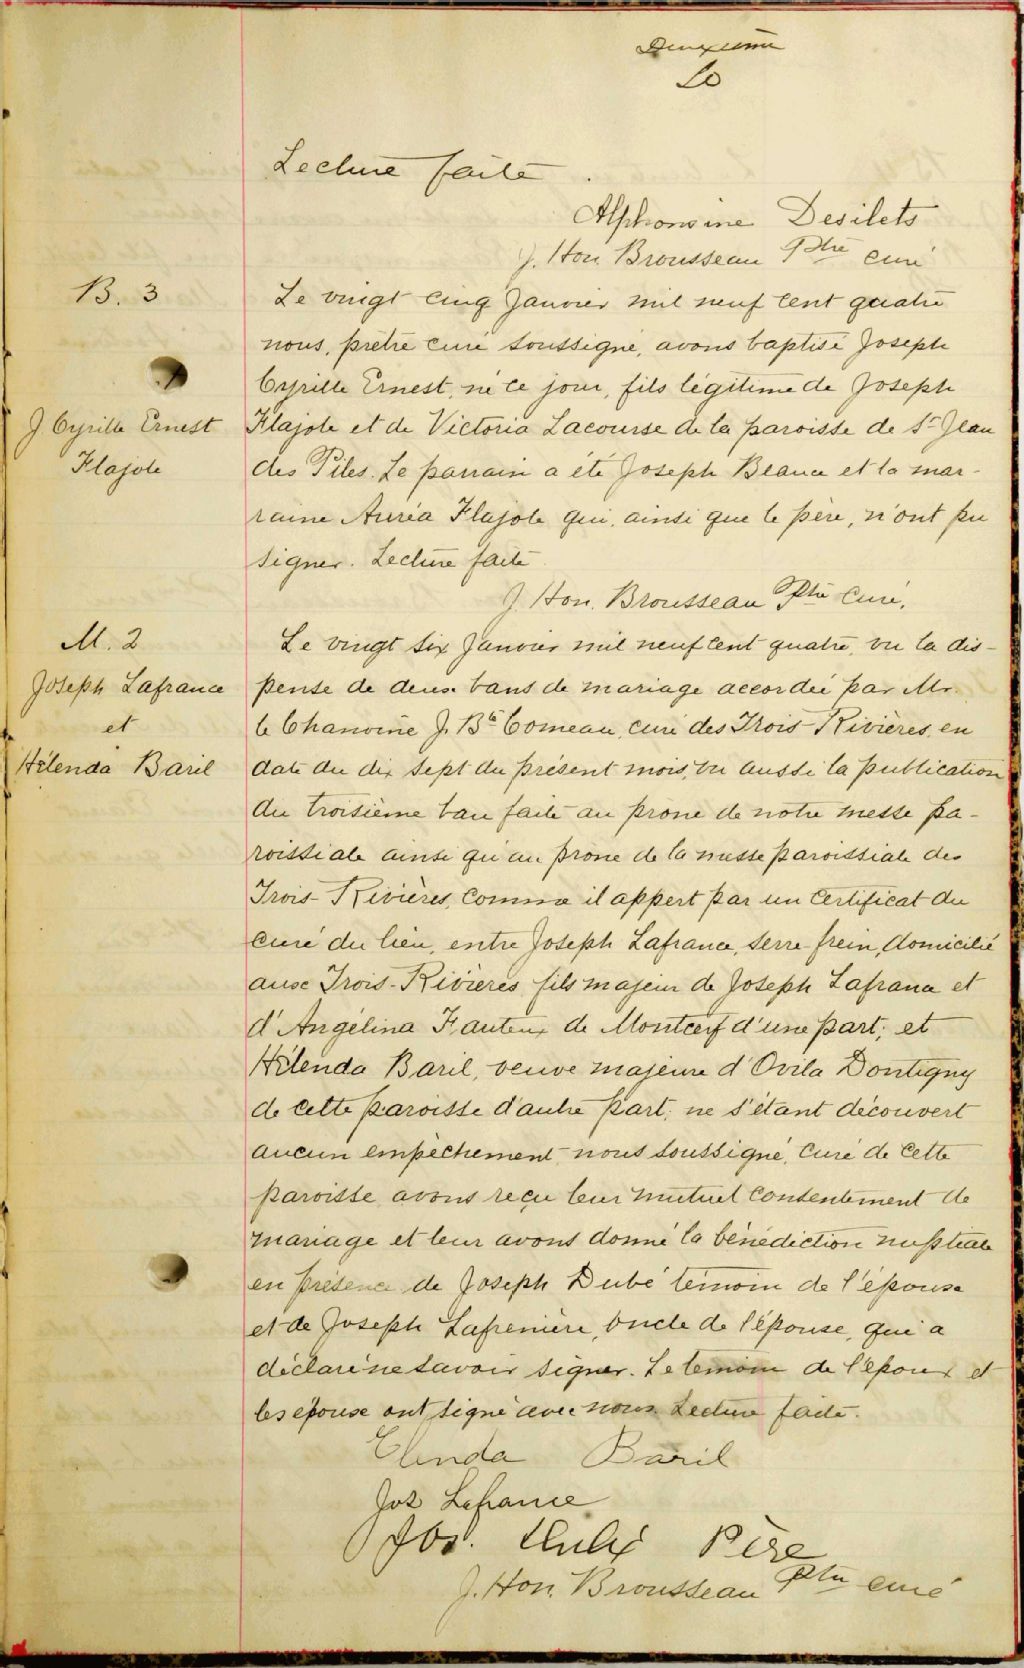 Deuxième
Lecture faite
Alphonsine Desilets
J. Hon. Brousseau Ptre curé
B. 3
Le vingt cinq Janvier mil neuf cent quatre
nous, prêtre curé soussigné, avons baptisé Joseph
Cyrille Ernest, né ce jour, fils légitime de Joseph
J. Cyrille Ernest
Flajole
Flajole et de Victoria Lacourse de la paroisse de St Jean
des Piles. Le parrain a été Joseph Beauce et la mar-
raine Auréa Flajole qui, ainsi que le père, n'ont pu
signer. Lecture faite
J. Hon. Brousseau Ptre Curé.
M. 2
Joseph Lafrance
et
Hélenda Baril
Le vingt six Janvier mil neuf cent quatre, vu la dis-
pense de deux bans de mariage accordée par Mr.
le Chanoine J. Bte Comeau, curé des Trois-Rivières, en
date du dix sept du présent mois, vu aussi la publication
du troisième ban faite au prone de notre messe pa-
roissiale ainsi qu'au prone de la messe paroissiale des
Trois-Rivières, comme il appert par un certificat du
curé du lieu, entre Joseph Lafrance, serre-frein, domicilié
aux Trois-Rivières, fils majeur de Joseph Lafrance et
d'Angélina Fauteux de Montcerf d'une part; et
Hélenda Baril, veuve majeure d'Ovila Dontigny
de cette paroisse d'autre part; ne s'étant découvert
aucun empêchement nous soussigné, curé de cette
paroisse avons reçu leur mutuel consentement de
mariage et leur avons donné la bénédiction nuptiale
en présence de Joseph Dubé témoin de l'épouse
et de Joseph Lafrenière, oncle de l'épouse, qui a
déclaré ne savoir signer. Le temoin de l'époux et
les épouse ont signé avec nous. Lecture faite.
Elenda Baril
Jos Lafrance
Jos. Dubé Père
J. Hon. Brousseau Ptre curé